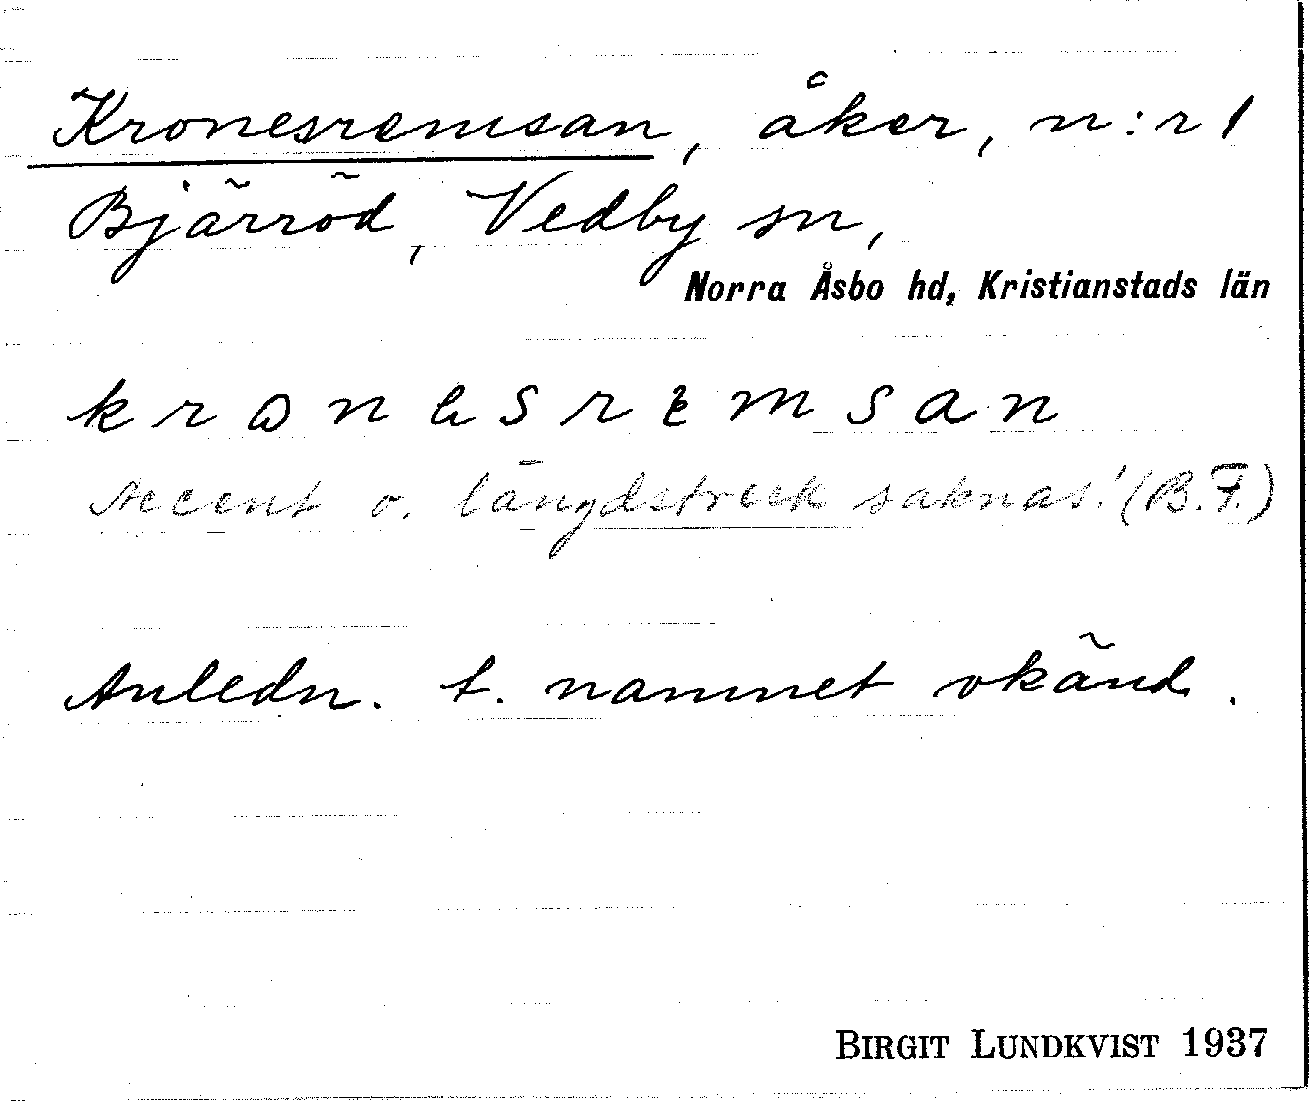 Kronesremsan, åker, n:r 1
Bjärröd, Vedby sn,
Norra Åsbo hd, Kristianstads län
k r o n e s r e m s a n
Accent o. längdstreck saknas! (B.F.)
Anledn. t. namnet okänd.
BIRGIT LUNDKVIST 1937